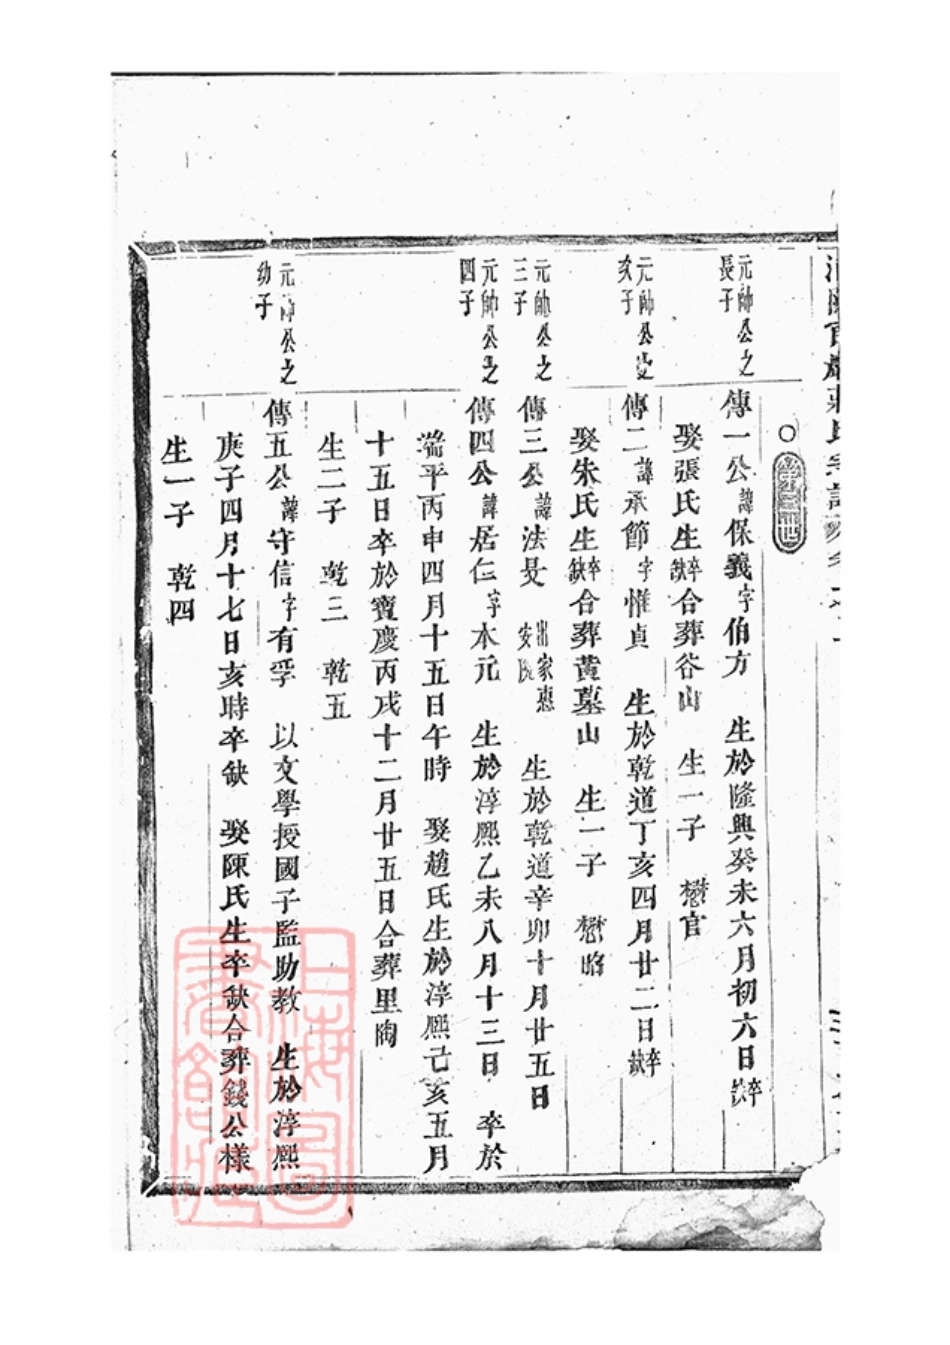 ○第三世
元帥公之長子
傳一公諱保義字伯方　生於隆興癸未六月初六日卒缺
娶張氏生卒缺合葬谷山　生一子　懋官
元帥公之次子
傳二諱承節字惟貞　生於乾道丁亥四月廿二日卒缺
娶朱氏生卒缺合葬黃墓山　生一子　懋略
元帥公之三子
傳三公諱法旻　出家惠安院　生於乾道辛卯十月廿五日
元帥公之四子
傳四公諱居仁字本元　生於淳熙乙未八月十三日　卒於
端平丙申四月十五日午時　娶趙氏生於淳熙己亥五月
十五日卒於寶慶丙戌十二月廿五日合葬里陶
生二子　乾三　乾五
元帥公之幼子
傳五公諱守信字有孚　以文學授國子監助教　生於淳熙
庚子四月十七日亥時卒缺　娶陳氏生卒缺合葬錢公樣
生一子　乾四
上海圖書館藏